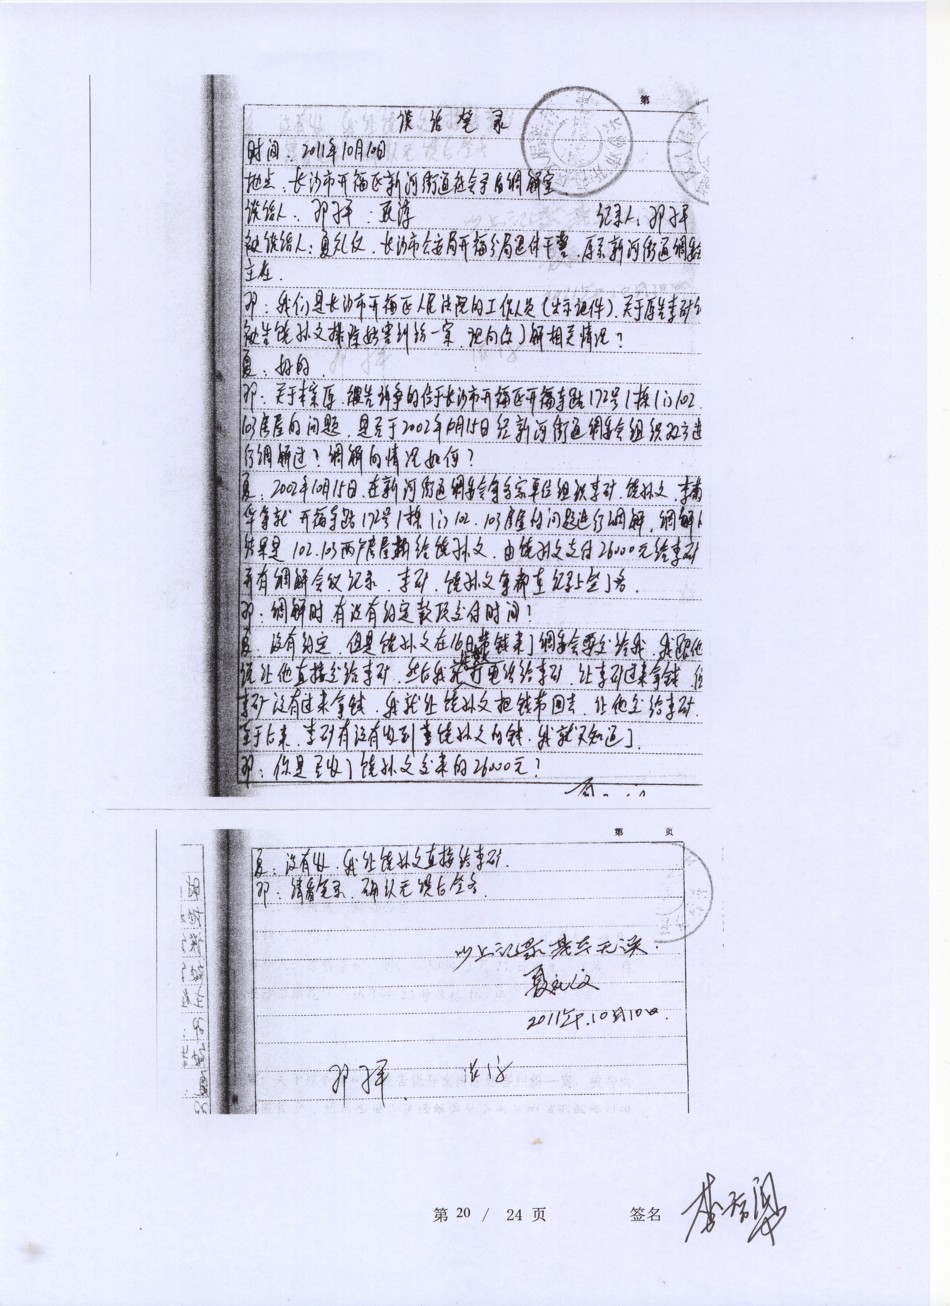 第
谈话笔录
时间:2011年10月10日
地点:长沙市开福区新河街道社会矛盾调解室
谈话人: 记录人:
被谈话人:夏礼文.长沙市公安局开福分局退休干警.原系新河街道调
主任.
我们是长沙市开福区人民法院的工作人员(出示证件).关于原告李
被告饶孙文排除妨害纠纷一案.现向你了解相关情况?
夏:好的.
关于本案原.被告诉争的位于长沙市开福区开福寺路172号1栋1门102.
103房屋的问题.是否于2002年10月15日经新河街道调委会组织双方进
行调解过?调解的情况如何?
夏:2002年10月15日.在新河街道调委会等多家单位组织李 饶孙文.李
华等就开福寺路172号1栋1门102.103房屋的问题进行调解.调解
结果是102.103两户房屋 给饶孙文.由饶孙文支付26000元给李
并有调解会议记录.李 饶孙文等都在记录上签了名.
调解时有没有约定款项交付时间?
夏:没有约定.但是饶孙文在16日带钱来了调委会要交给我.我跟他
说让他直接交给李 然后我就打电话给李 让李 过来拿钱.但
李 没有过来拿钱.我就让饶孙文把钱带回去.让他交给李
至于后来.李 有没有收到饶孙文的钱.我就不知道了.
你是否收了饶孙文交来的26000元?
第 页
夏:没有收.我让饶孙文直接给李
请看笔录.确认无误后签名.
以上记录属实无误.
夏礼文
2011年.10月10日.
第 20 / 24 页 签名